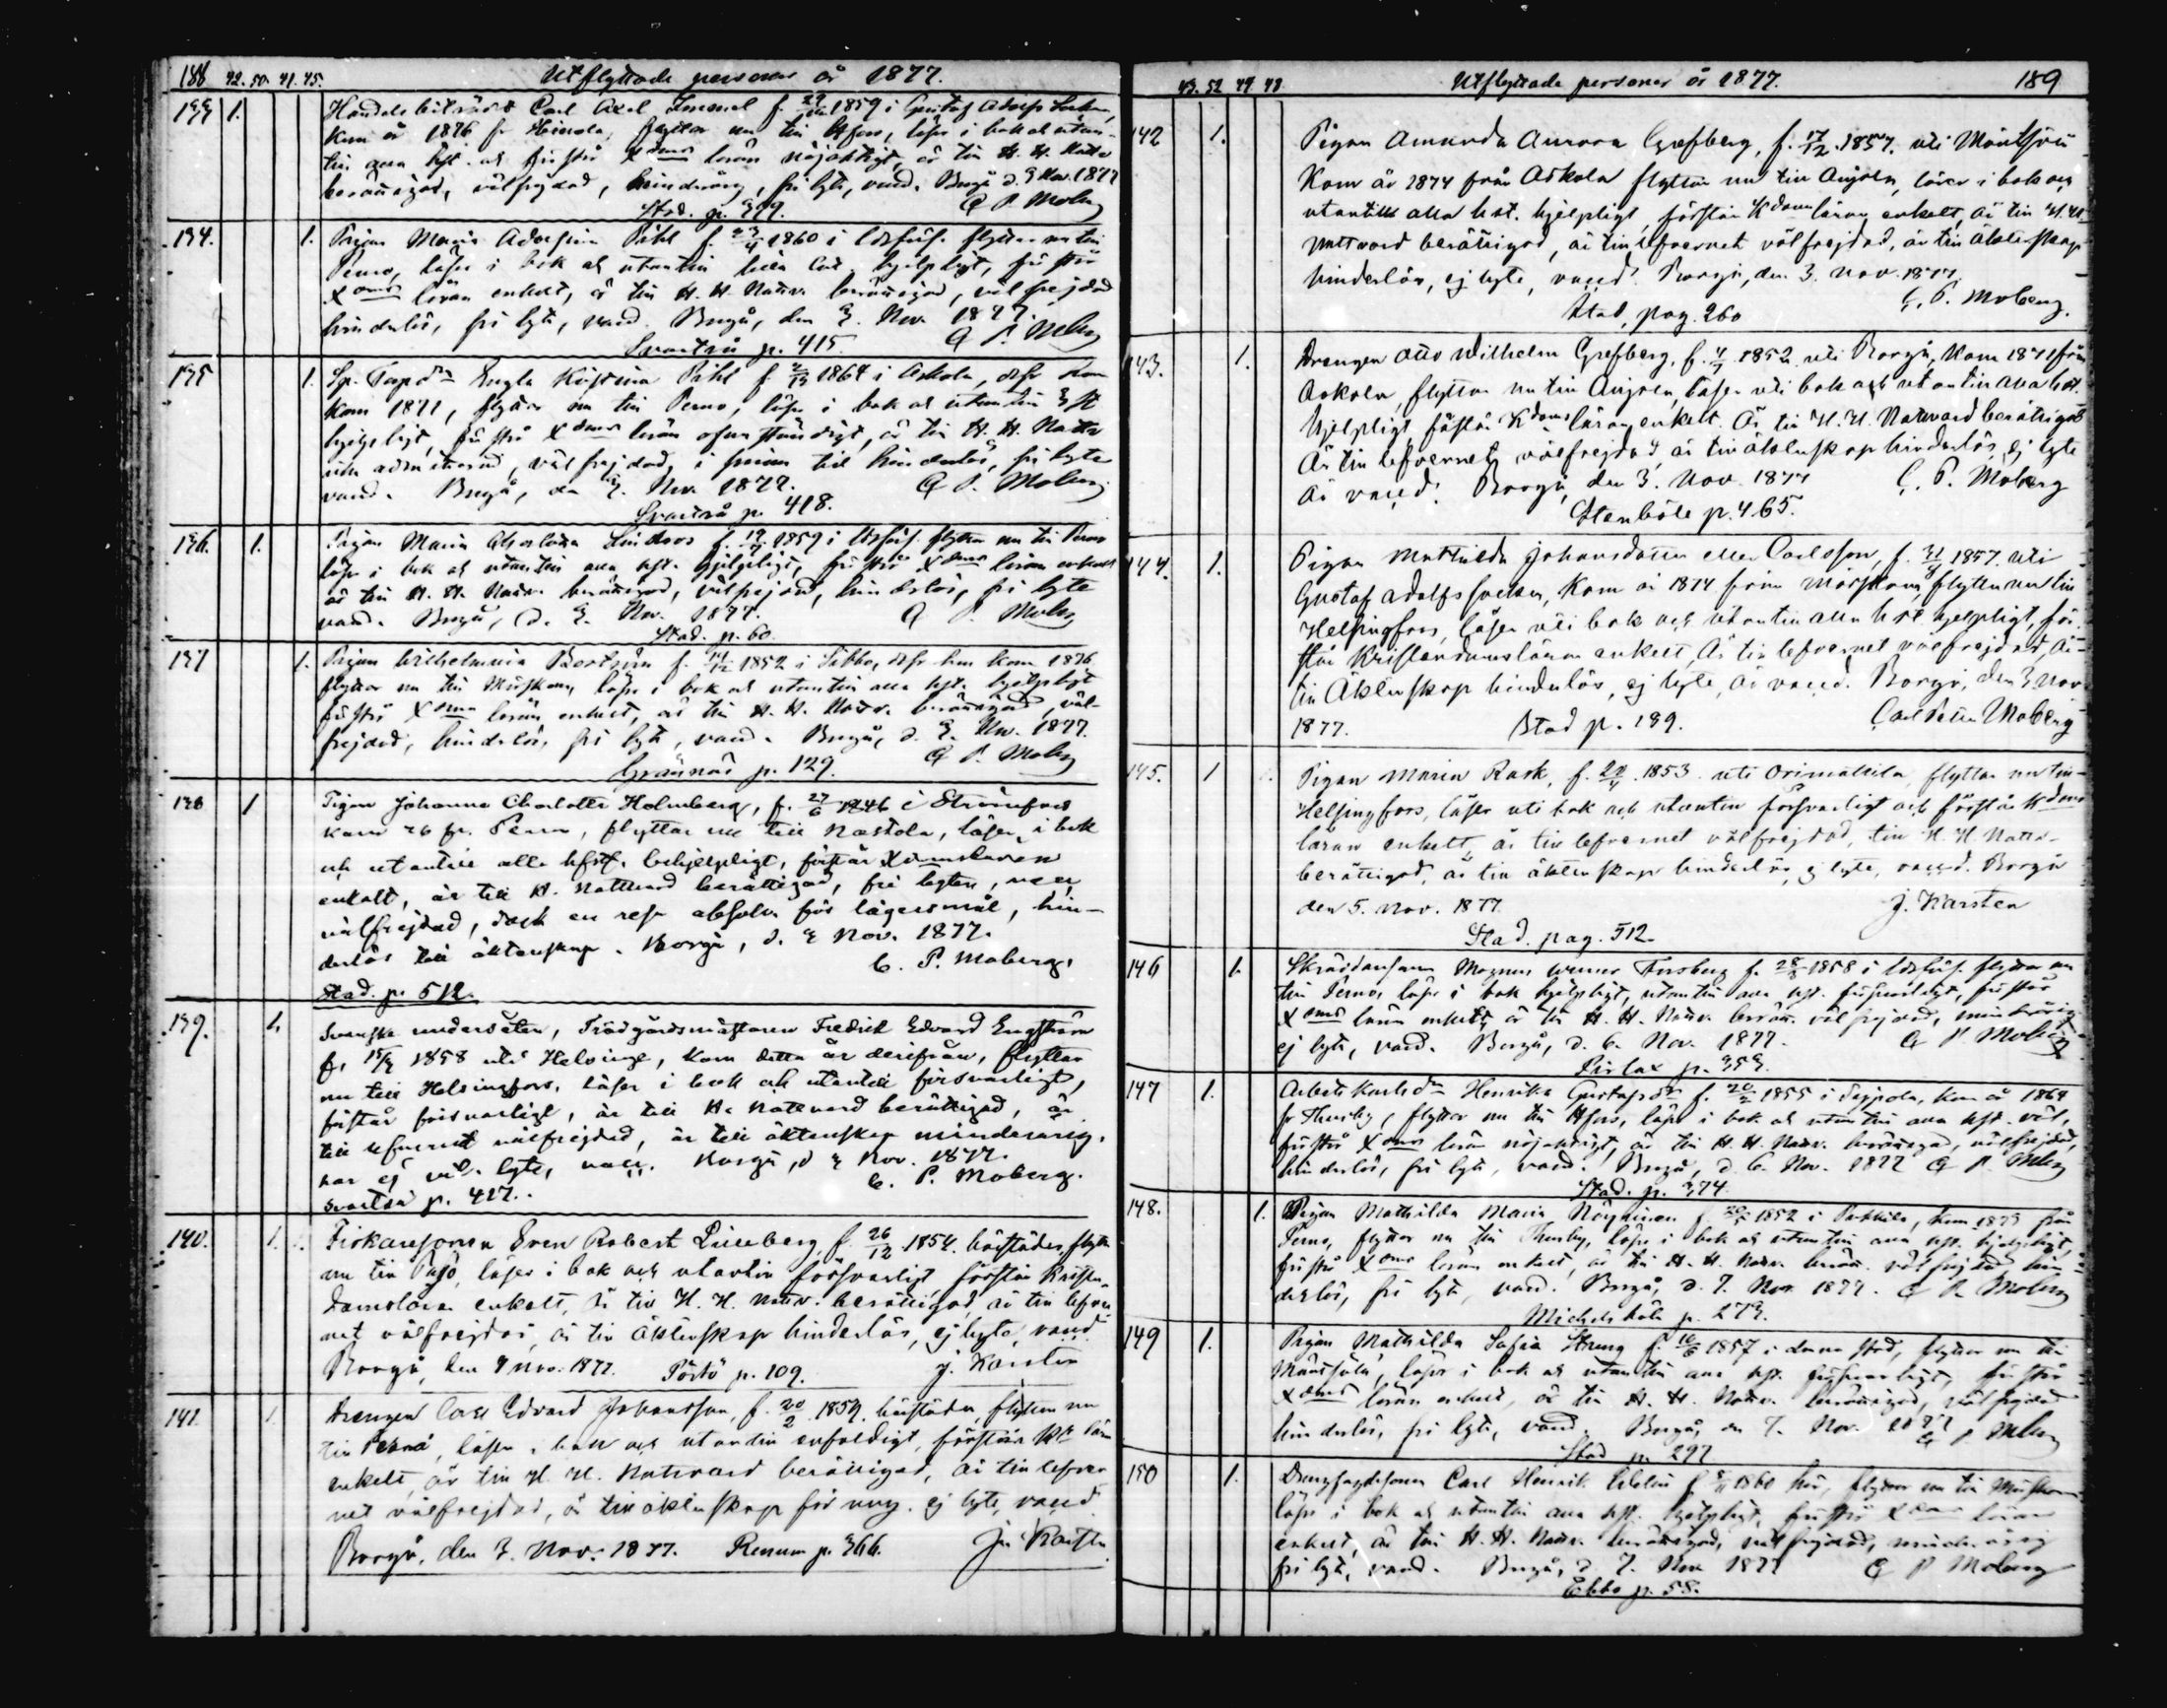 188 42. 50. 41. 45. Utflyttade personer år 1877.
133 1. Handelsbiträdet Carl Axel f. 29 1859 i Gustaf Adolfs Socken,
kom år 1876 fr Heinola, flyttar nu till Hfors, läser i bok och utan-
till alla hst. och förstår Xdoms läran nöjaktigt, är till H. H. Nattv
berättigad, välfrejdad, fri lyte, vacc. Borgå d. 3 Nov. 1877
Stad. p. 399. C P. Moberg
134. 1. Pigan Maria Adolfina Påhl f. 23/4 1860 i flyttar nu till
Perno, läser i bok och utantill hjelpligt, förstår
Xdoms läran enkelt, är till H. H. Nattv. berättigad, välfrejdad
hinderlös, fri lyte, vacc. Borgå, den 3. Nov. 1877.
Svartså p. 415. C P. Moberg
135 1. Engla Kristina Påhl f. 1864 i Askola, dfr hon
kom 1871, flyttar nu till Perno, läser i bok och utantill 3 st
hjelpligt, förstår Xdoms läran ofullständigt, är till H. H. Nattv
icke admitterad, välfrejdad, hinderlös, fri lyte
vacc. Borgå, den 3. Nov. 1877. C P. Moberg
Svartså p. 418.
136. 1. Pigan Maria Charlotta Lindroos f. 19/7 1859 i flyttar nu till Perno
läser i bok och utantill alla hst. hjelpligt, förstår Xdoms läran enkelt
är till H. H. Nattv. berättigad, välfrejdad, hinderlös, fri lyte
vacc. Borgå, d. 3. Nov. 1877. C P. Moberg
Stad. p. 60.
137 1. Pigan Wilhelmina f. 14/12 1852 i Sibbo, dfr hon kom 1876
flyttar nu till Mörskom, läser i bok och utantill alla hst. hjelpligt
förstår Xdoms läran enkelt, är till H. H. Nattv. berättigad, väl-
frejdad, hinderlös, fri lyte, vacc. Borgå, d. 3. Nov. 1877.
Grännäs p. 129. C P. Moberg
138 1 Pigan Johanna Charlotta Holmberg, f. 27/6 1846 i Strömfors
kom 76 fr. Perno, flyttar nu till Nastola, läser i bok
och utantill alla hfst. behjelpligt, förstår Xdomsläran
enkelt, är till H. Nattvard berättigad, fri lyten, vacc,
välfrejdad, dock en resa absolv. för lägersmål, hin-
derlös till äktenskap. Borgå, d. 3 Nov. 1877.
C. P. Moberg.
Stad. p. 512.
139. 1. Svenske undersåten, Trädgårdsmästaren Fredrik Edvard Engström
f. 15/3 1858 uti Helsinge, kom detta år derifrån, flyttar
nu till Helsingfors, läser i bok och utantill försvarligt,
förstår försvarligt, är till H. Nattvard berättigad, är
till lefvernet välfrejdad, är till äktenskap minderårig,
har ej lyte, vacc. Borgå, d 3 Nov. 1877.
Svartså p. 427. C. P. Moberg.
140. 1. Fiskaresonen Sven Robert Lilleberg, f. 26/12 1854 härstädes, flyttar
nu till läser i bok och utantill försvarligt förstår Kristen-
domsläran enkelt, är till H. H. Nattv. berättigad, är till lefver
net välfrejdad, är till äktenskap hinderlös, ej lyte, vacc
Borgå, den 7 nov. 1877. Pörtö p. 109. J. Karsten
141. 1. Drengen Carl Edvard Johansson, f. 20/2 1859 härstädes, flyttar nu
till Perno, läser i bok och utantill enfaldigt, förstår läran
enkelt, är till H. H. Nattvard berättigad, är till lefver
net välfrejdad, är till äktenskap för ung. ej lyte, vacc.
Borgå, den 7. Nov. 1877. p. 366. Karsten
43. 52 49 48 Utflyttade personer år 1877. 189
142 1. Pigan Amanda Aurora Grefberg, f. 17/12 1857. uti Mäntsälä
Kom år 1874 från Askola flyttar nu till Anjala, läser i bok och
utantill alla hst. hjelpligt, förstår Kdomsläran enkelt, är till H.H.
Nattvard berättigad, är till lefvernet välfrejdad, är till äktenskap
hinderlös, ej lyte, vacc. Borgå, den 3. nov. 1877.
Stad, pag. 260 C. P. Moberg.
143. 1. Drengen Otto Wilhelm Grefberg, f. 4/7 1852 uti Borgå, Kom 1871 från
Askola, flyttar nu till Anjala, läser uti bok och utantill alla hst.
hjelpligt, förstår Kdoms läran enkelt. Är till H. H. Nattvard berättigad
Är till lefvernet välfrejdad, är till äktenskap hinderlös, ej lyte
är vacc. Borgå, den 3. Nov. 1877 C. P. Moberg
Stenböle p. 465.
144. 1. Pigan Mathilda Johansdotter eller Carlsson, f. 31 1857 uti
Gustaf Adolfs socken, Kom år 1874 från Mörskom, flyttar nu till
Helsingfors, läser uti bok och utantill alla hst hjelpligt, för-
står Kristendomsläran enkelt, Är till lefvernet välfrejdad, är
till Äktenskap hinderlös, ej lyte, är vacc. Borgå, den 3 Nov
1877. Stad p. 189. Carl Petter Moberg
145. 1 Pigan Maria Rask, f. 1853 uti Orimattila, flyttar nu till
Helsingfors, läser uti bok och utantill försvarligt och förstår Kdoms
läran enkelt, är till lefvernet välfrejdad, till H. H. Nattv-
berättigad, är till äktenskap hinderlös, ej lyte, vacc. Borgå
den 5. nov. 1877 J. Karsten
Stad. pag. 512.
146 1. Magnus Werner Forsberg f. 28 1858 i flyttar nu
till Perno, läser i bok hjelpligt, utantill alla hst. försvarligt, förstår
Xdoms läran enkelt, är till H. H. Nattv. berätt. välfrejdad, minderårig
ej lyte, vacc. Borgå, d. 6. Nov. 1877. C P Moberg
Pirlax p. 353.
147 1. Henrika Gustafsdr f. 20/2 1855 i Seppola, kom år 1864
fr Thusby, flyttar nu till Hfors, läser i bok och utantill alla hst. väl,
förstår Xdoms läran nöjaktigt, är till H. H. Nattv. berättigad, välfrejdad,
hinderlös, fri lyte, vacc. Borgå, d. 6. Nov. 1877 C P. Moberg
Stad. p. 374.
148. 1. Pigan Mathilda Maria f. 1852 i kom 1873 från
Perno, flyttar nu till Thusby, läser i bok och utantill alla hst. hjelpligt,
förstår Xdoms läran enkelt, är till H. H. Nattv. berätt. välfrejdad, hin-
derlös, fri lyte, vacc. Borgå, d. 7. Nov. 1877. C P. Moberg
Michelsböle p. 273.
149 1. Pigan Mathilda Sofia Streng f. 16 1857 i denna stad, flyttar nu till
Mäntsälä, läser i bok och utantill alla hst. försvarligt, förstår
Xdoms läran enkelt, är till H. H. Nattv. berättigad, välfrejdad
hinderlös, fri lyte, vacc. Borgå, den 7. Nov. 1877 C P Moberg
Stad p. 297
150 1. Carl Henrik f 1860 här, flyttar nu till Mörskom
läser i bok och utantill alla hst. hjelpligt, förstår Xdoms läran
enkelt, är till H. H. Nattv. berättigad, välfrejdad, minderårig
fri lyte, vacc. Borgå, d 7. Nov 1877 C P Moberg
Ebbo p. 58.